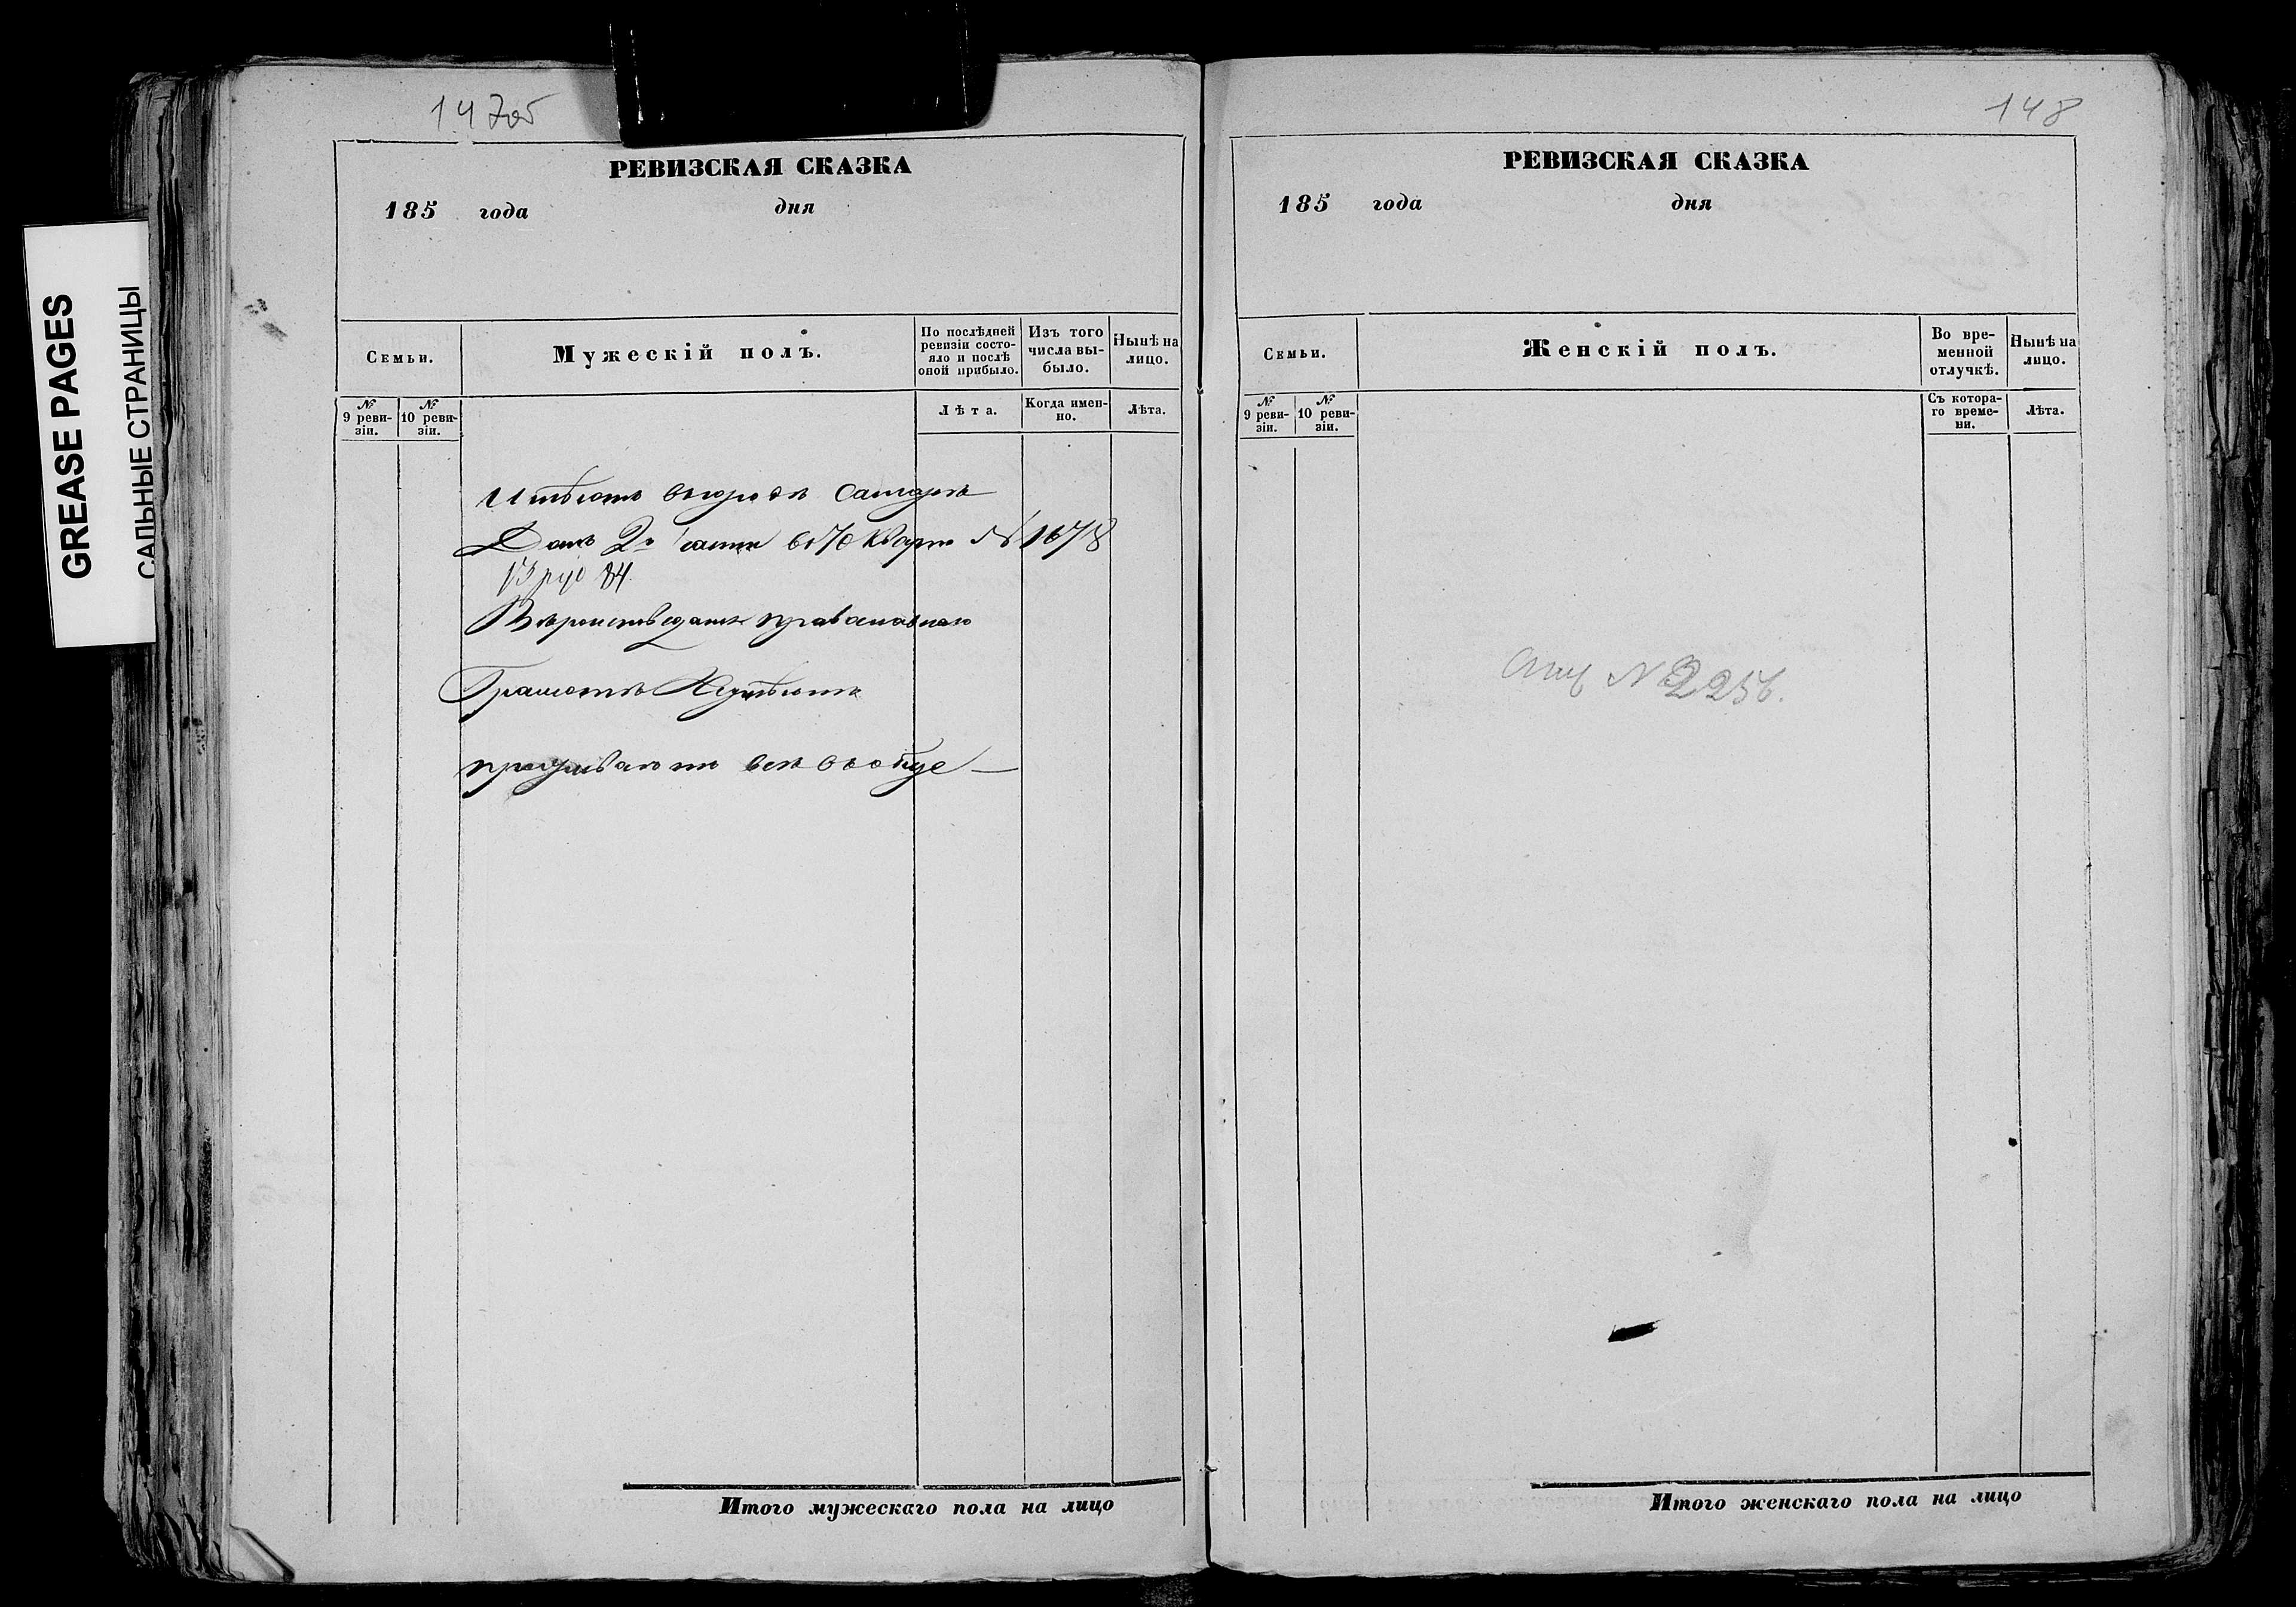 GREASE PAGES
САЛЬНЫЕ СТРАНИЦЫ
147об
РЕВИЗСКАЯ СКАЗКА
185 года дня
Семьи.
Мужескій полъ.
По послѣдней ревизіи состояло и послѣ оной прибыло.
Изъ того числа выбыло.
Нынѣ на лицо.
№ 9 ревизіи.
№ 10 ревизіи.
Лѣта.
Когда именно.
Лѣта.
Имѣютъ въ городѣ Самарѣ
Домъ 2й части въ 70 Кварт № 1678
84
Вѣроисповеданія православнаго
Грамоте Неумѣютъ
проживаютъ всѣ вообще —
Итого мужескаго пола на лицо
148
РЕВИЗСКАЯ СКАЗКА
185 года дня
Семьи.
Женскій полъ.
Во временной отлучкѣ.
Нынѣ на лицо.
№ 9 ревизіи.
№ 10 ревизіи.
Съ котораго времени.
Лѣта.
Итого женскаго пола на лицо